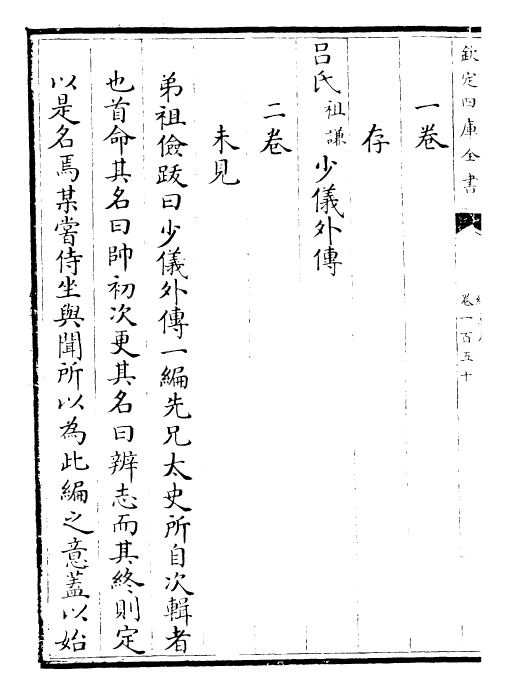 欽定四庫全書
卷一百五十
一卷
存
呂氏祖謙少儀外傳
二卷
未見
弟祖儉跋曰少儀外傳一編先兄太史所自次輯者
也首命其名曰帥初次更其名曰辨志而其終則定
以是名焉某嘗侍坐與聞所以為此編之意蓋以始